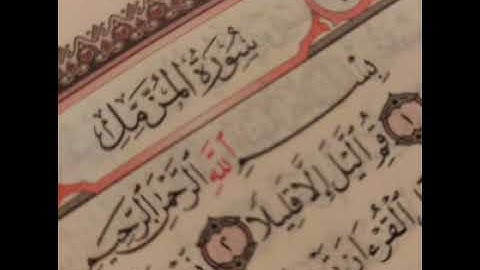 سُورَةُ الْمُزَّمِّلِ
بِسْمِ اللَّهِ الرَّحْمَٰنِ الرَّحِيمِ
١ قُمِ اللَّيْلَ إِلَّا قَلِيلًا ٢
الْقُرْءَانَ